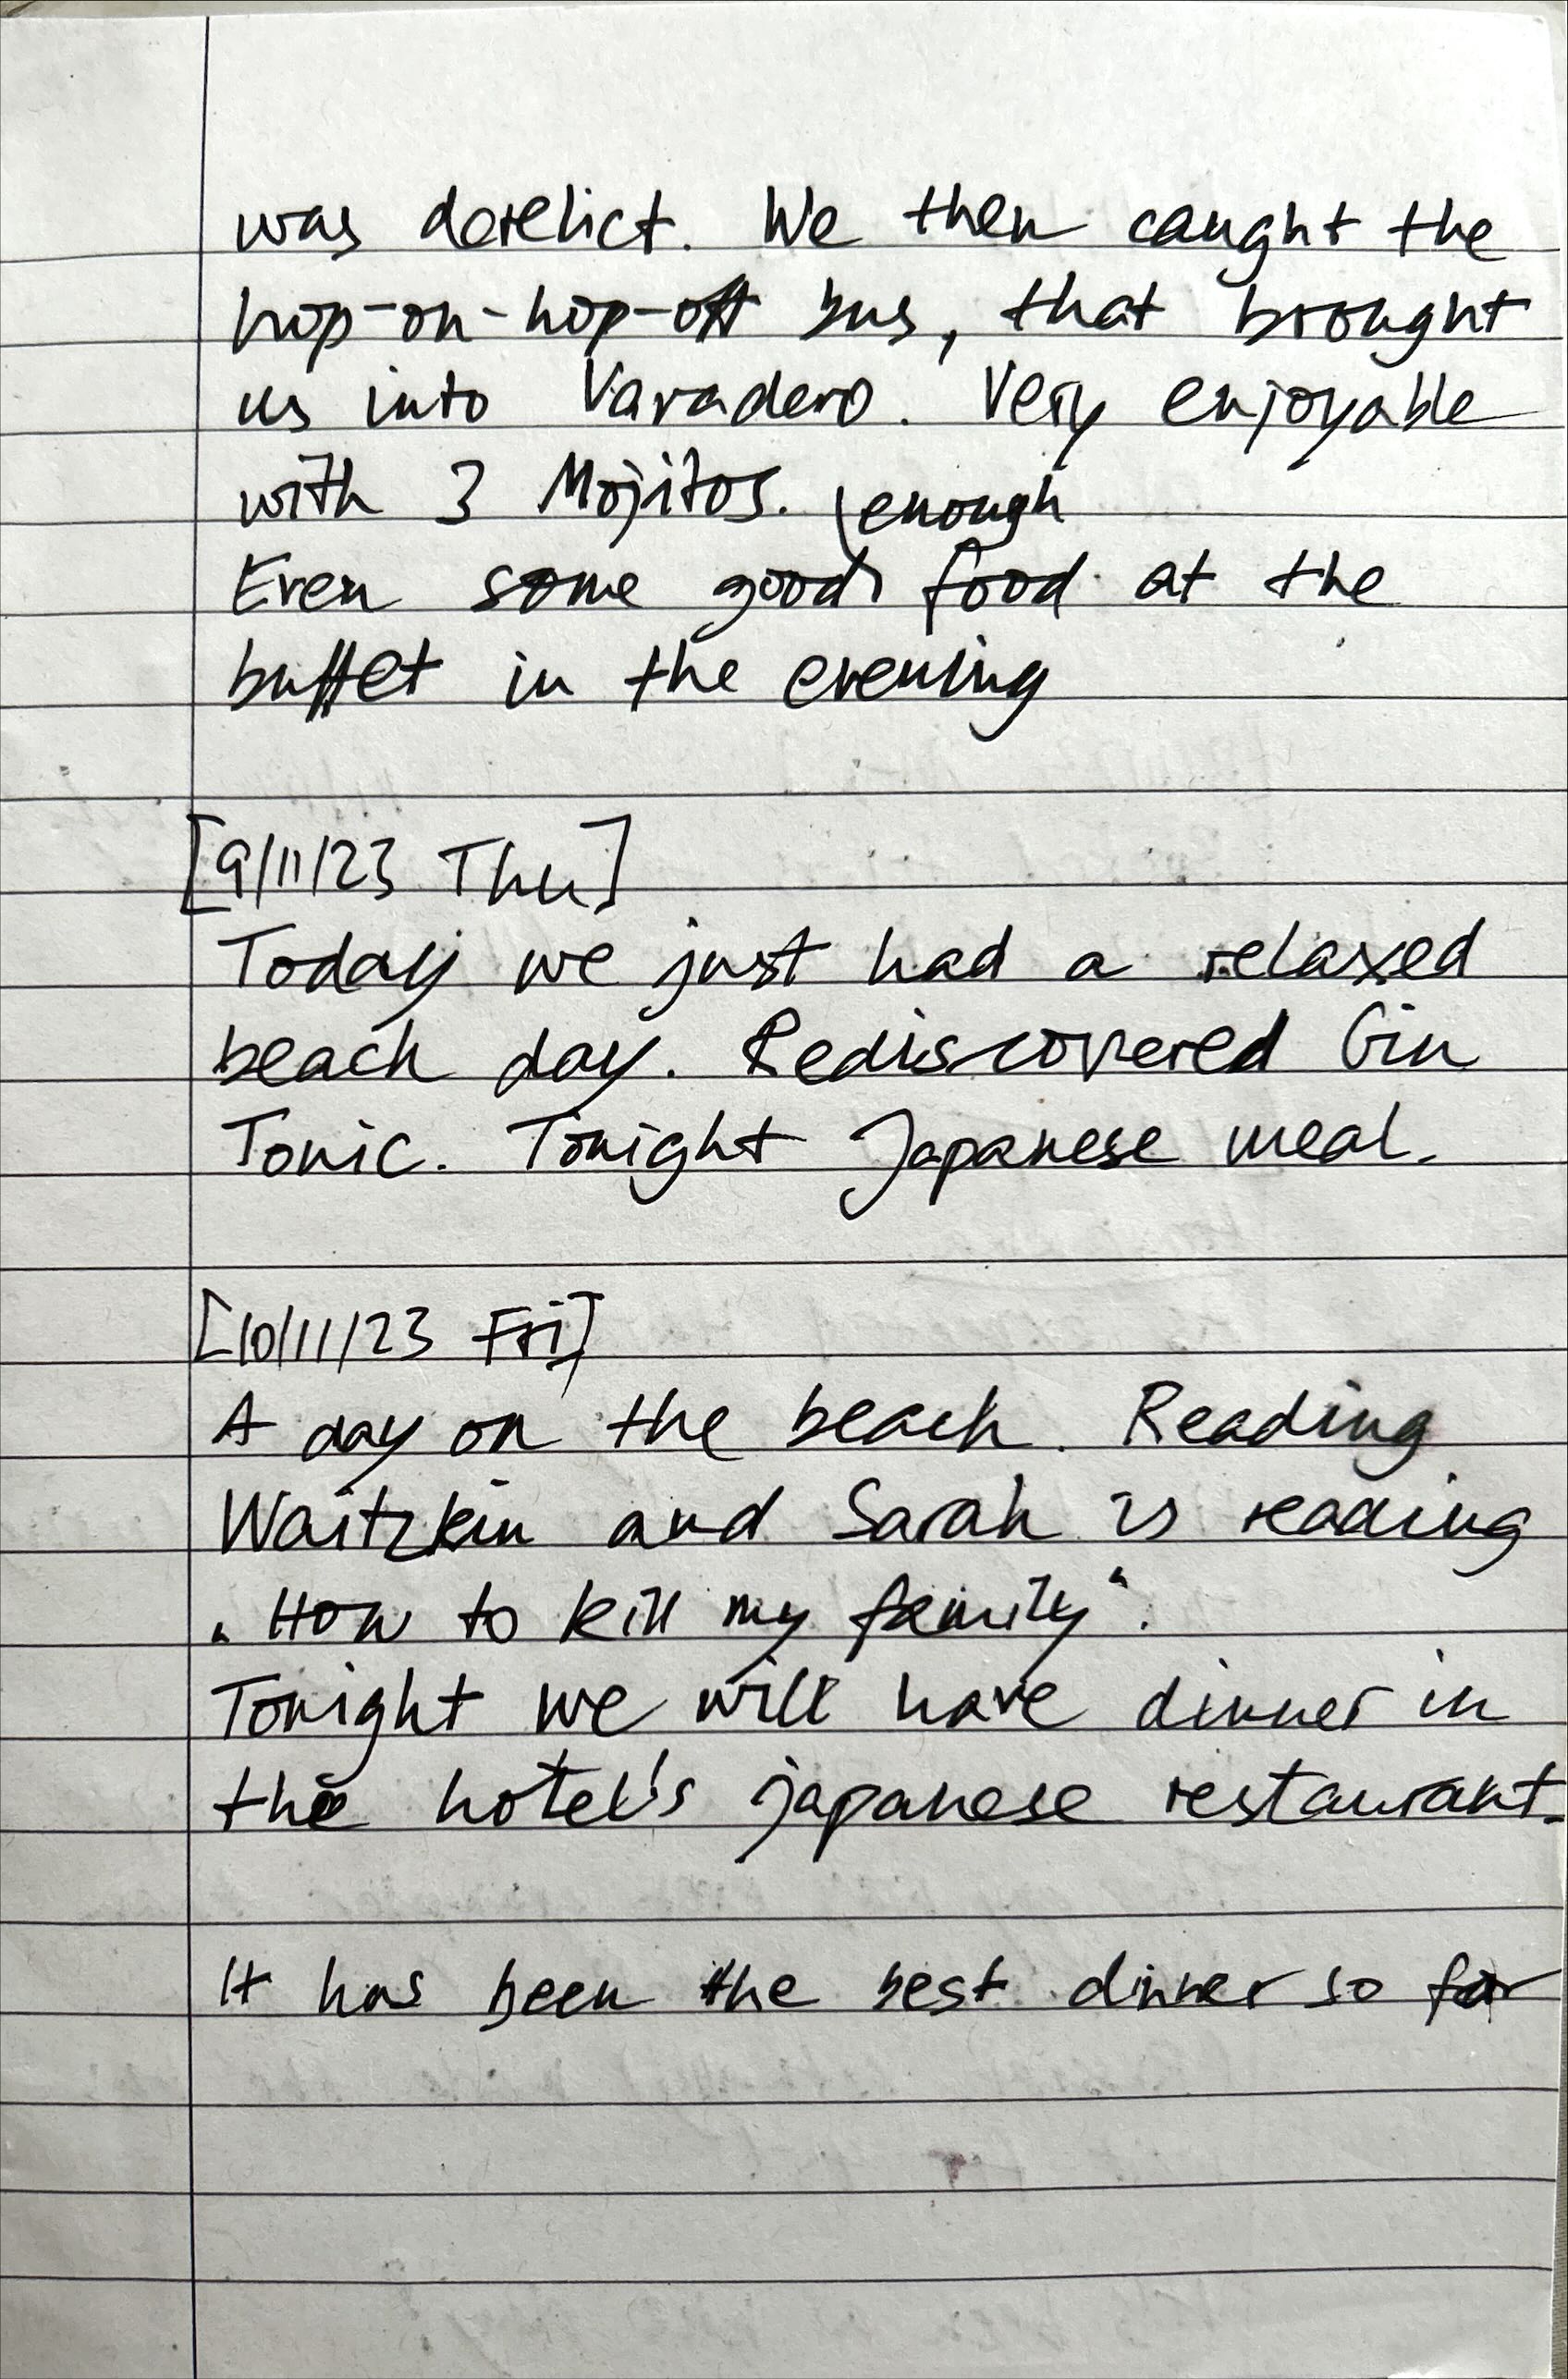 was derelict. We then caught the
hop-on-hop-off bus, that brought
us into Varadero. Very enjoyable
with 3 Mojitos.
enough
Even some good food at the
buffet in the evening
[9/11/23 Thu]
Today we just had a relaxed
beach day. Rediscovered Gin
Tonic. Tonight Japanese meal.
[10/11/23 Fri]
A day on the beach. Reading
Waitzkin and Sarah is reading
„How to kill my family“.
Tonight we will have dinner in
the hotel's japanese restaurant.
It has been the best dinner so far